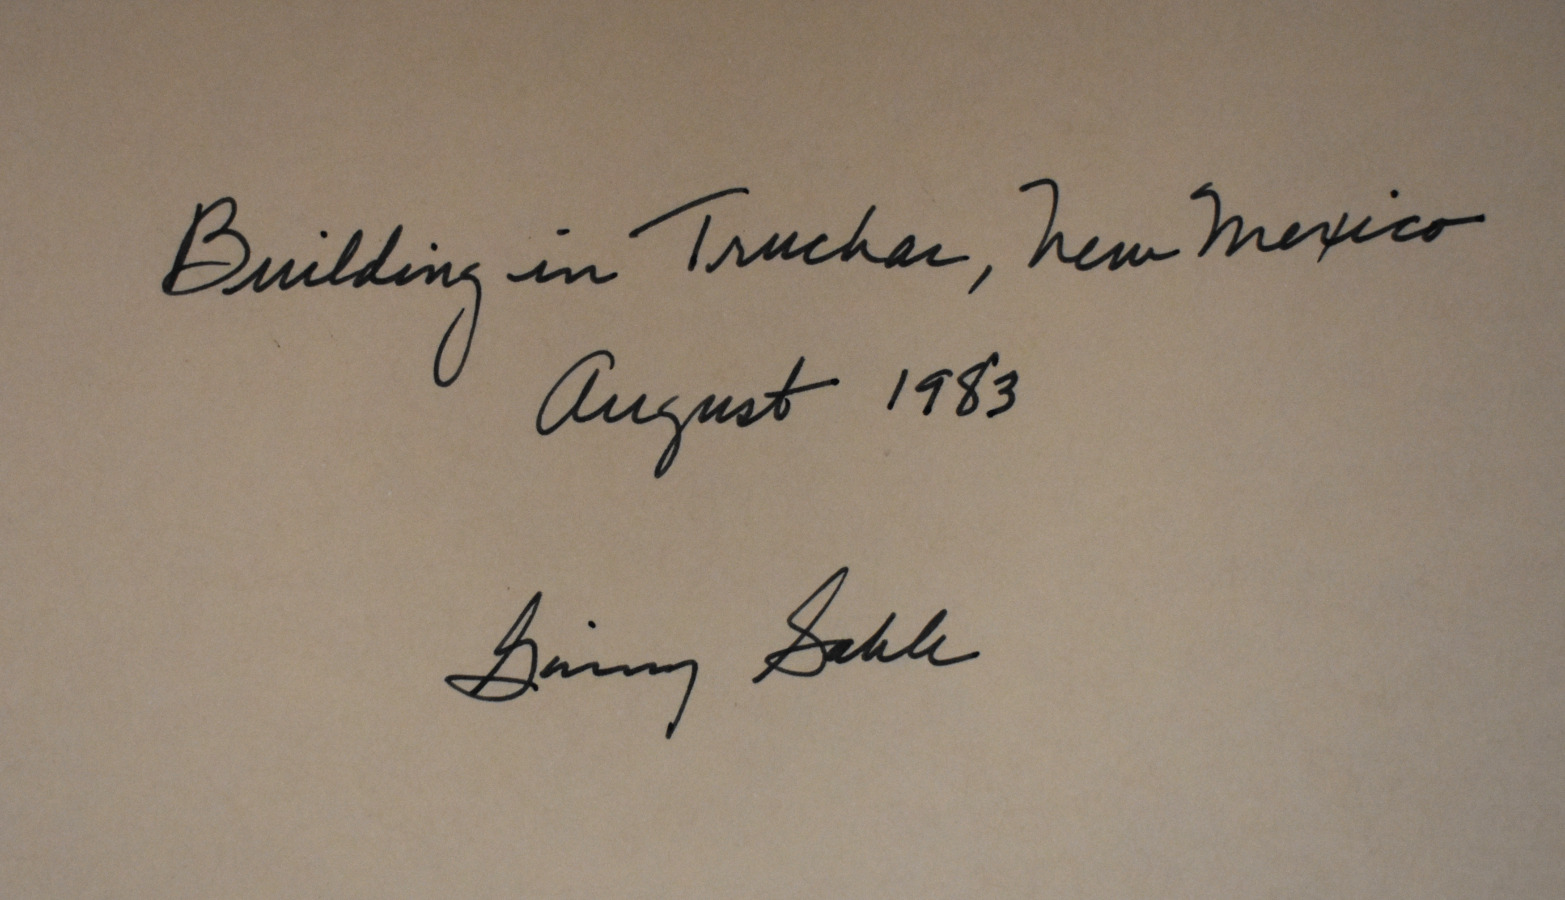 Building in Truchas, New Mexico
August 1983
Ginny